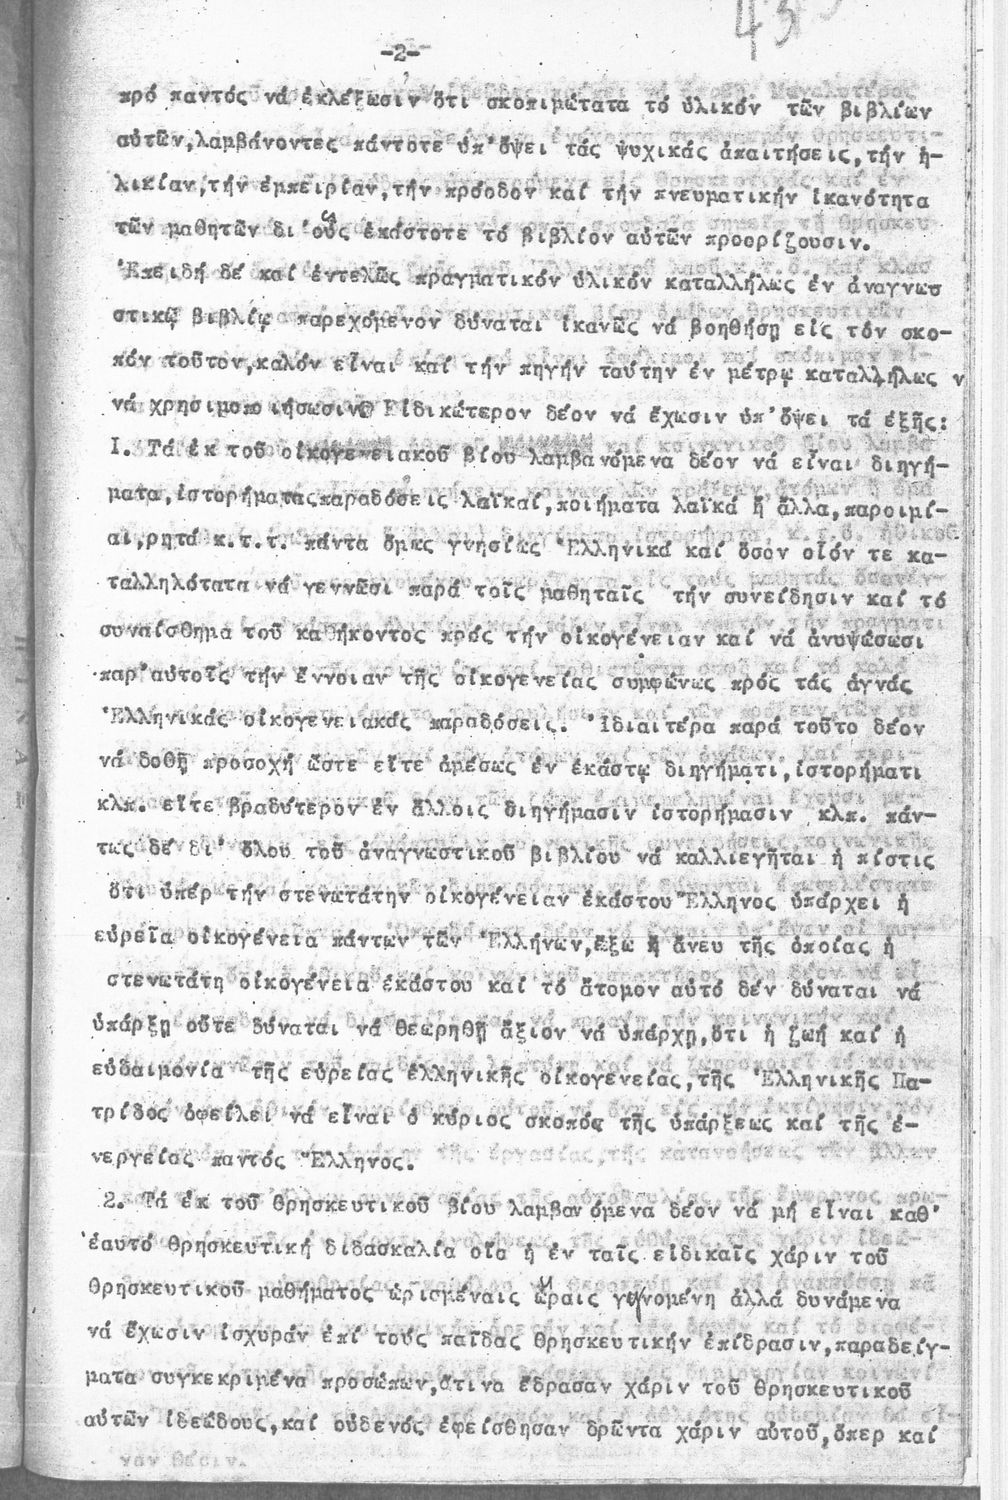 -2-
πρό παντός νά ἐκλέξωσιν ὅτι σκοπιμώτατα τό ὑλικόν τῶν βιβλίων
αὐτῶν,λαμβάνοντες πάντοτε ὑπ'ὄψει τάς ψυχικάς ἀπαιτήσεις,τήν ἡ-
λικίαν,τήν ἐμπειρίαν,τήν πρόοδον καί τήν πνευματικήν ἱκανότητα
τῶν μαθητῶν δι'οὕς ἑκάστοτε τό βιβλίον αὐτῶν προορίζουσιν.
Ἐπειδή δέ καί ἐντελῶς πραγματικόν ὑλικόν καταλλήλως ἐν ἀναγνωσ
στικῷ βιβλίῳ παρεχόμενον δύναται ἱκανῶς νά βοηθήσῃ εἰς τόν σκο-
πόν τοῦτον,καλόν εἶναι καί τήν πηγήν ταύτην ἐν μέτρῳ καταλλήλως ν
νά χρησιμοποιήσωσιν. Εἰδικώτερον δέον νά ἔχωσιν ὑπ'ὄψει τά ἑξῆς:
I. Τά ἐκ τοῦ οἰκογενειακοῦ βίου λαμβανόμενα δέον νά εἶναι διηγή-
ματα,ἱστορήματα,παραδόσεις λαϊκαί,ποιήματα λαϊκά ἤ ἄλλα,παροιμί-
αι,ρητά κ.τ.τ. πάντα ὅμως γνησίως Ἑλληνικά καί ὅσον οἷόν τε κα-
ταλληλότατα νά γεννῶσι παρά τοῖς μαθηταῖς τήν συνείδησιν καί τό
συναίσθημα τοῦ καθήκοντος πρός τήν οἰκογένειαν καί νά ἀνυψώσωσι
παρ'αὐτοῖς τήν ἔννοιαν τῆς οἰκογενείας συμφώνως πρός τάς ἁγνάς
Ἑλληνικάς οἰκογενειακάς παραδόσεις. Ἰδιαιτέρα παρά τοῦτο δέον
νά δοθῇ προσοχή ὥστε εἴτε ἀμέσως ἐν ἑκάστῳ διηγήματι,ἱστορήματι
κλπ. εἴτε βραδύτερον ἐν ἄλλοις διηγήμασιν ἱστορήμασιν κλπ. πάν-
τως δέ δι' ὅλου τοῦ ἀναγνωστικοῦ βιβλίου νά καλλιεγῆται ἡ πίστις
ὅτι ὑπέρ τήν στενωτάτην οἰκογένειαν ἑκάστου Ἕλληνος ὑπάρχει ἡ
εὐρεῖα οἰκογένεια πάντων τῶν Ἑλλήνων,ἔξω ἤ ἄνευ τῆς ὁποίας ἡ
στενωτάτη οἰκογένεια ἑκάστου καί τό ἄτομον αὐτό δέν δύναται νά
ὑπάρξῃ οὔτε δύναται νά θεωρηθῇ ἄξιον νά ὑπάρχῃ,ὅτι ἡ ζωή καί ἡ
εὐδαιμονία τῆς εὐρείας ἑλληνικῆς οἰκογενείας,τῆς Ἑλληνικῆς Πα-
τρίδος ὀφείλει νά εἶναι ὁ κύριος σκοπός τῆς ὑπάρξεως καί τῆς ἐ-
νεργείας παντός Ἕλληνος.
2. Τά ἐκ τοῦ θρησκευτικοῦ βίου λαμβανόμενα δέον νά μή εἶναι καθ'
ἑαυτό θρησκευτική διδασκαλία οἵα ἡ ἐν ταῖς εἰδικαῖς χάριν τοῦ
θρησκευτικοῦ μαθήματος ὡρισμέναις ὥραις γινομένη ἀλλά δυνάμενα
νά ἔχωσιν ἰσχυράν ἐπί τούς παῖδας θρησκευτικήν ἐπίδρασιν,παραδείγ-
ματα συγκεκριμένα προσώπων,ἅτινα ἔδρασαν χάριν τοῦ θρησκευτικοῦ
αὐτῶν ἰδεώδους,καί οὐδενός ἐφείσθησαν δρῶντα χάριν αὐτοῦ,ὅπερ καί